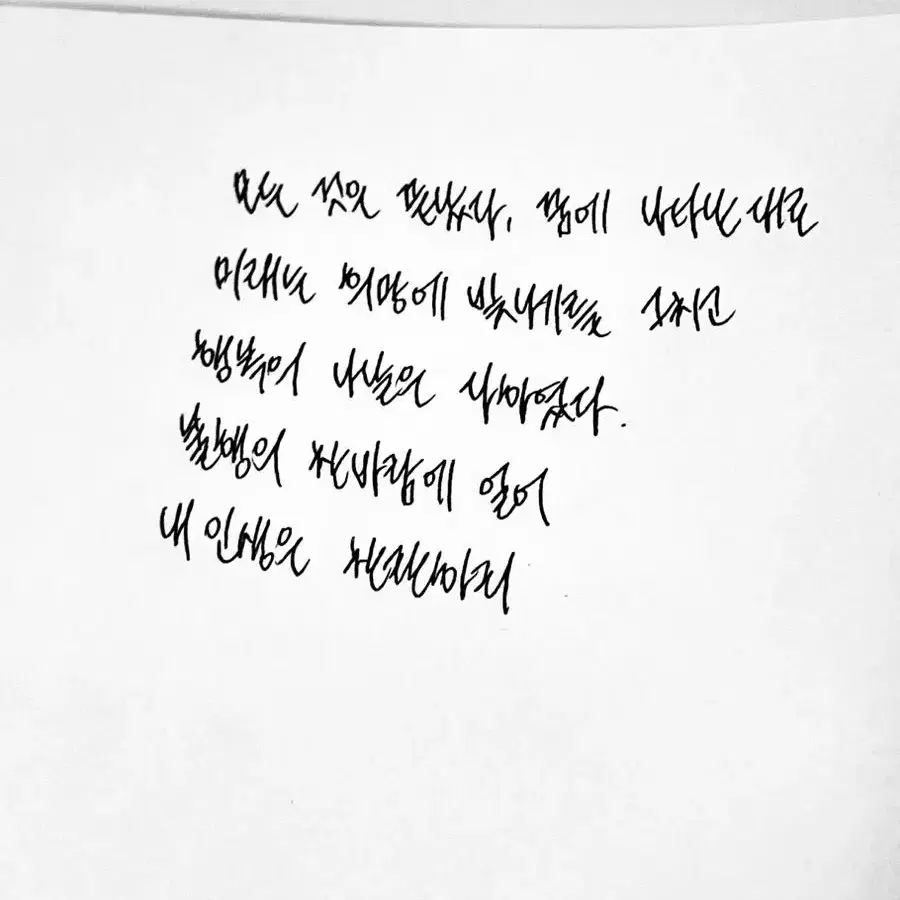 모든 것은 끝났다. 꿈에 나타난 대로
미래는 희망에 빛나기를 그치고
행복의 나날은
불행의 찬바람에 얼어
내 인생은